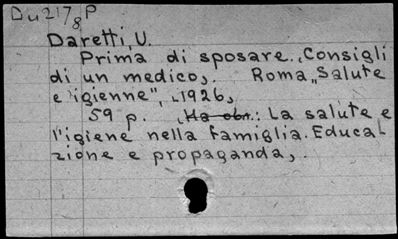 Du217 8 P
Daretti, U.
Prima di sposare. Consigli
di un medico,. Roma, "Salute
e igienne", 1926,
59 p. (На обл.: La salute e
l'igiene nella famiglia. Educa-
zione e propaganda,.